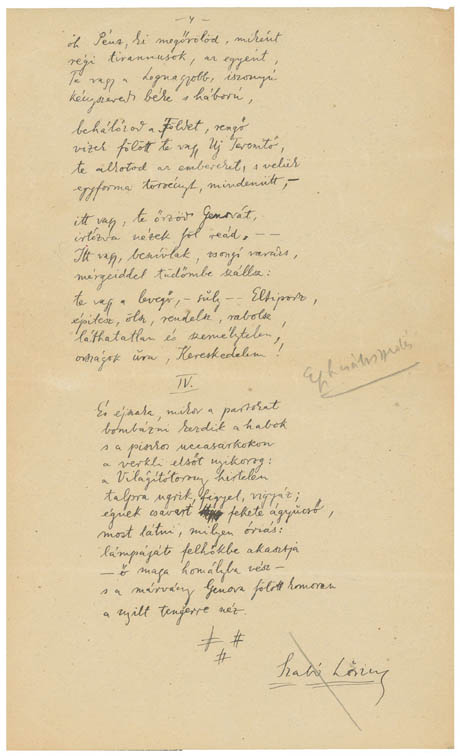 — 4 —
óh Pénz, ki megőrölöd, miként
régi tirannusok, az egyént,
Te vagy a Legnagyobb, iszonyú
kényszered: béke s háború,
behálózod a Földet, rengő
vizek fölött te vagy Uj Teremtő,
te alkotod az embereket, s velük
egyforma törvényt, mindenütt, —
itt vagy, te őrződ Genovát,
irtózva nézek föl reád. — —
Itt vagy, beszívlak, zsongó varázs,
mérgeiddel tüdőmbe szállsz:
te vagy a levegő, — súly — — Eltiporsz,
építesz, ölsz, rendelsz, rabolsz,
láthatatlan és személytelen,
országok ura, Kereskedelem!
IV.
És éjszaka, mikor a partokat
bombázni kezdik a habok
s a piszkos uccasarkokon
a verkli elsőt nyikorog:
a Világítótorony hirtelen
talpra ugrik, figyel, vigyáz;
égnek csavart fekete ágyúcső,
most látni, milyen óriás:
lámpáját felhőkbe akasztja
— ő maga homályba vész —
s a márvány Genova fölött komoran
a nyilt tengerre néz.
# #
#
Szabó Lőrinc